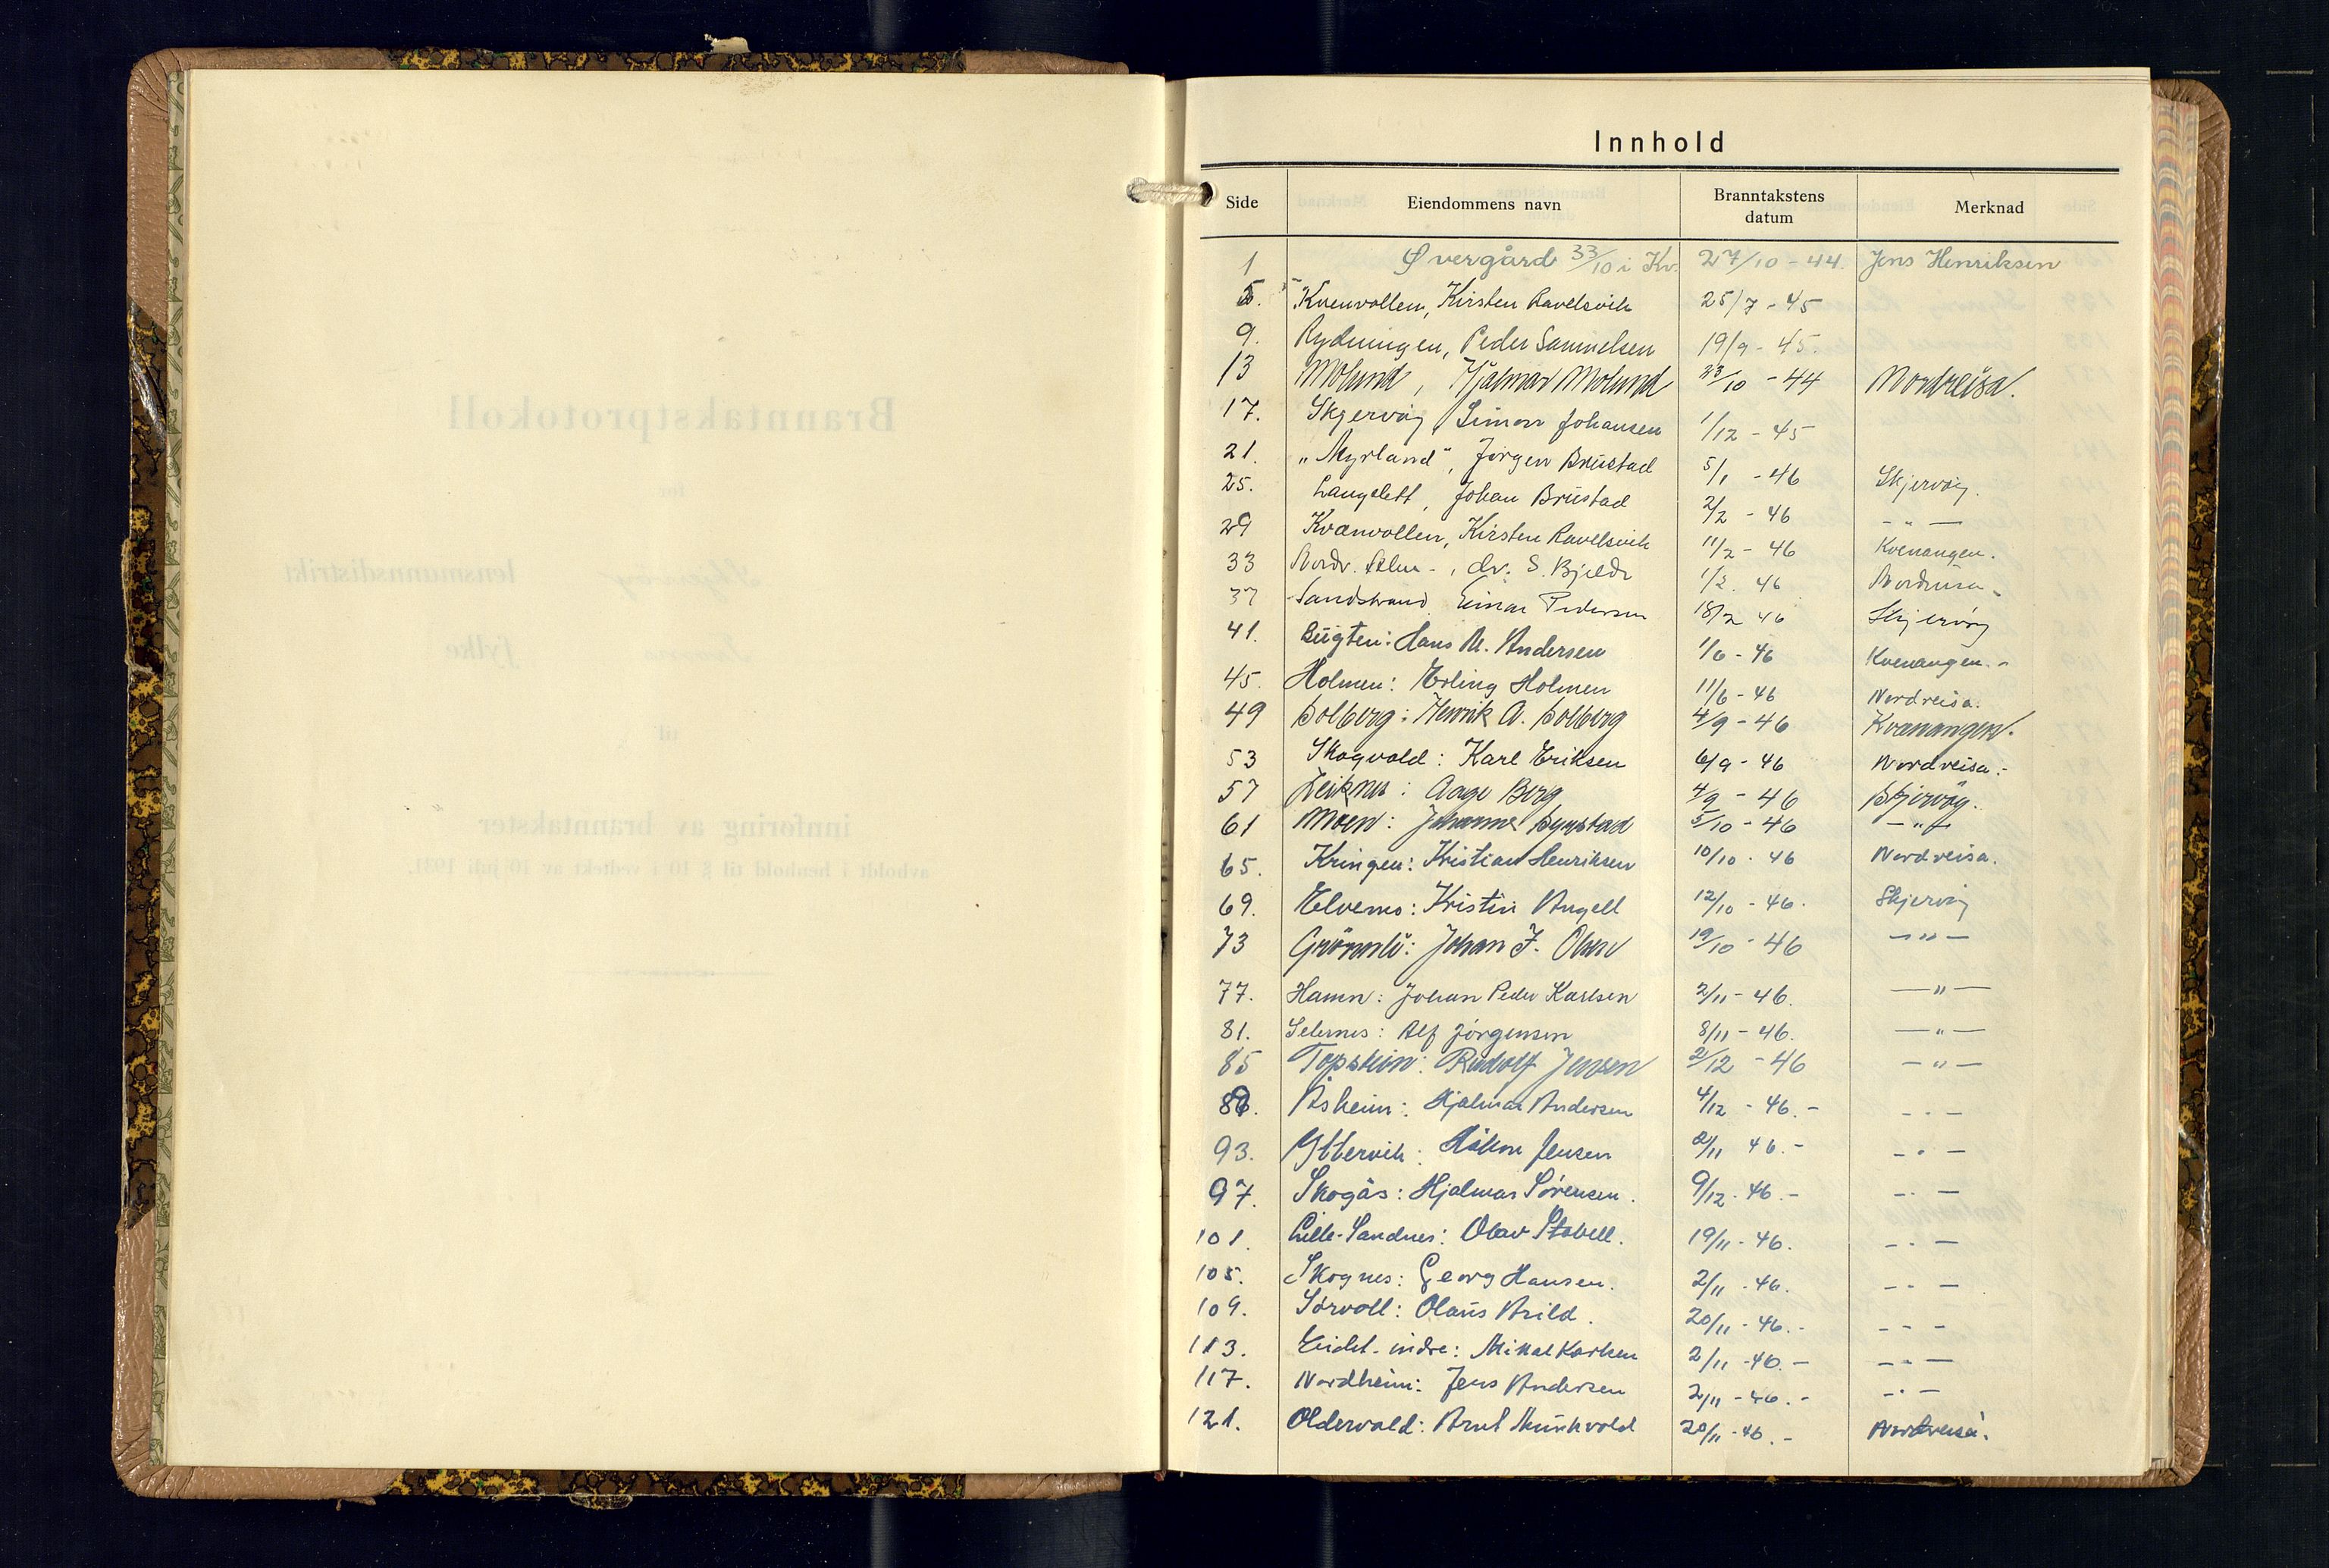 Innhold
Side Eiendommens navn Branntakstens datum Merknad
1 Øvergård 33/10 i Kv. 27/10 - 44. Jens Henriksen
5. Kvenvollen, Kirsten Ravelsvik 25/7 - 45
9. Rydningen, Peder Samuelsen 19/9 - 45.
13 Molund, Hjalmar Molund 23/10 - 44 Nordreisa.
17. Skjervøy, Simon Johansen 1/12 - 45
21. „Myrland", Jörgen Brustad 5/1 - 46 Skjervøy.
25. Langslett, Johan Brustad 2/2 - 46 - " -
29 Kvænvollen, Kirsten Ravelsvik 11/2 - 46 Kvenangen.
33 Nordr. 1/2. 46 Nordreisa.
37 Sandstrand. Einar Pedersen 18/2 46 Skjervøy
41. Bugten: Hans M. Andersen 1/6 - 46 Kvenangen.-
45. Holmen: Erling Holmen 11/6 - 46 Nordreisa.
49 Solberg: Henrik A. Solberg 4/9 - 46 Kvænangen.
53 Skogvold: Karl Eriksen 6/9 - 46 Nordreisa.-
57 Leiknes: Aage Berg 4/9 - 46 Skjervøy.
61 Moen: Johannes 5/10 - 46 - " -
65. Kringen: Kristian Henriksen 10/10. 46 Nordreisa.
69. Elvemo: Kristin Angell 12/10 - 46. Skjervøy
73 Grönnli: Johan J. Olsen 19/10 - 46 - " -
77. Hamn: Johan Peder Karlsen 2/11 - 46. - " -
81. Selnes: Alf Jörgensen 8/11 - 46. - " -
85 Topstein: Rudolf Jensen 2/12 - 46 - " -
89. Åsheim: Hjalmar Andersen 4/12 - 46.- - " -
93. Yttervik: Håkon Jensen 2/11 46.- - " -
97. Skogås: Hjalmar Sörensen. 9/12. 46.- - " -
101. Lille-Sandnes: Olav Stabell. 19/11 - 46. - " -
105. Skognes: Georg Hansen. 2/11 - 46. - " -
109. Sörvoll: Olaus Arild. 20/11 - 46.- - " -
113. Eidet-indre: Mikal Karlsen 2/11 - 46.- - " -
117. Nordheim: Jens Andersen 2/11 - 46.- - " -
121. Oldervold: Arnt Munkvold 20/11 - 46.- Nordreisa.